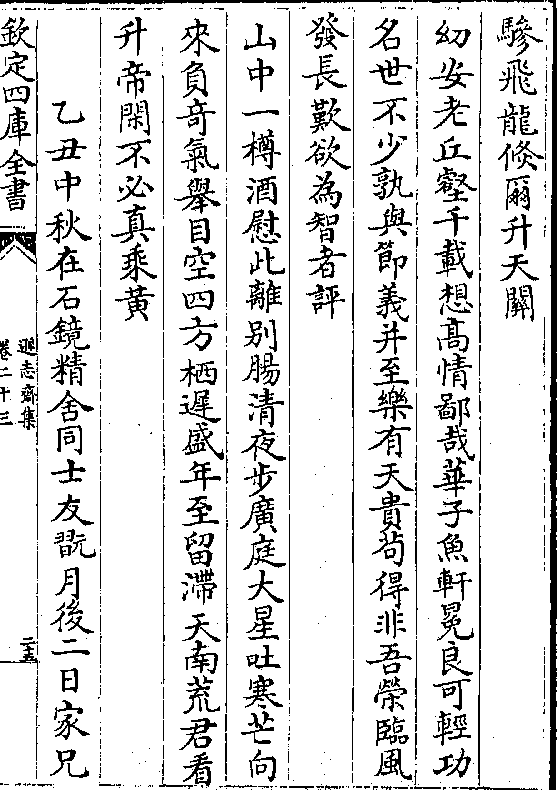 驂飛龍倐爾升天關
幼安老丘壑千載想髙情鄙哉華子魚軒冕良可輕功
名世不少孰與節義并至樂有天貴茍得非吾榮臨風
發長歎欲為智者評
山中一樽酒慰此離别腸清夜步廣庭大星吐寒芒向
來負竒氣舉目空四方栖遲盛年至留滯天南荒君看
升帝閑不必真乗黄
乙丑中秋在石鏡精舍同士友翫月後二日家兄
欽定四庫全書
遜志齋集
卷二十三
二十五